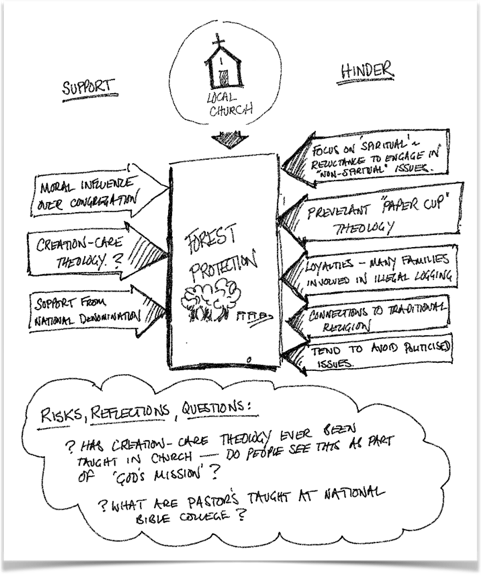 SUPPORT
LOCAL
CHURCH
HINDER
MORAL INFLUENCE
OVER CONGREGATION
CREATION-CARE
THEOLOGY?
SUPPORT FROM
NATIONAL DENOMINATION
FOREST
PROTECTION
FOCUS ON 'SPIRITUAL' ~
RELUCTANCE TO ENGAGE IN
"NON-SPIRITUAL" ISSUES.
PREVELANT "PAPER CUP"
THEOLOGY
LOYALTIES - MANY FAMILIES
INVOLVED IN ILLEGAL LOGGING
CONNECTIONS TO TRADITIONAL
RELIGION
TEND TO AVOID POLITICISED
ISSUES.
RISKS, REFLECTIONS, QUESTIONS:
? HAS CREATION-CARE THEOLOGY EVER BEEN
TAUGHT IN CHURCH — DO PEOPLE SEE THIS AS PART
OF 'GOD'S MISSION'?
? WHAT ARE PASTOR'S TAUGHT AT NATIONAL
BIBLE COLLEGE?